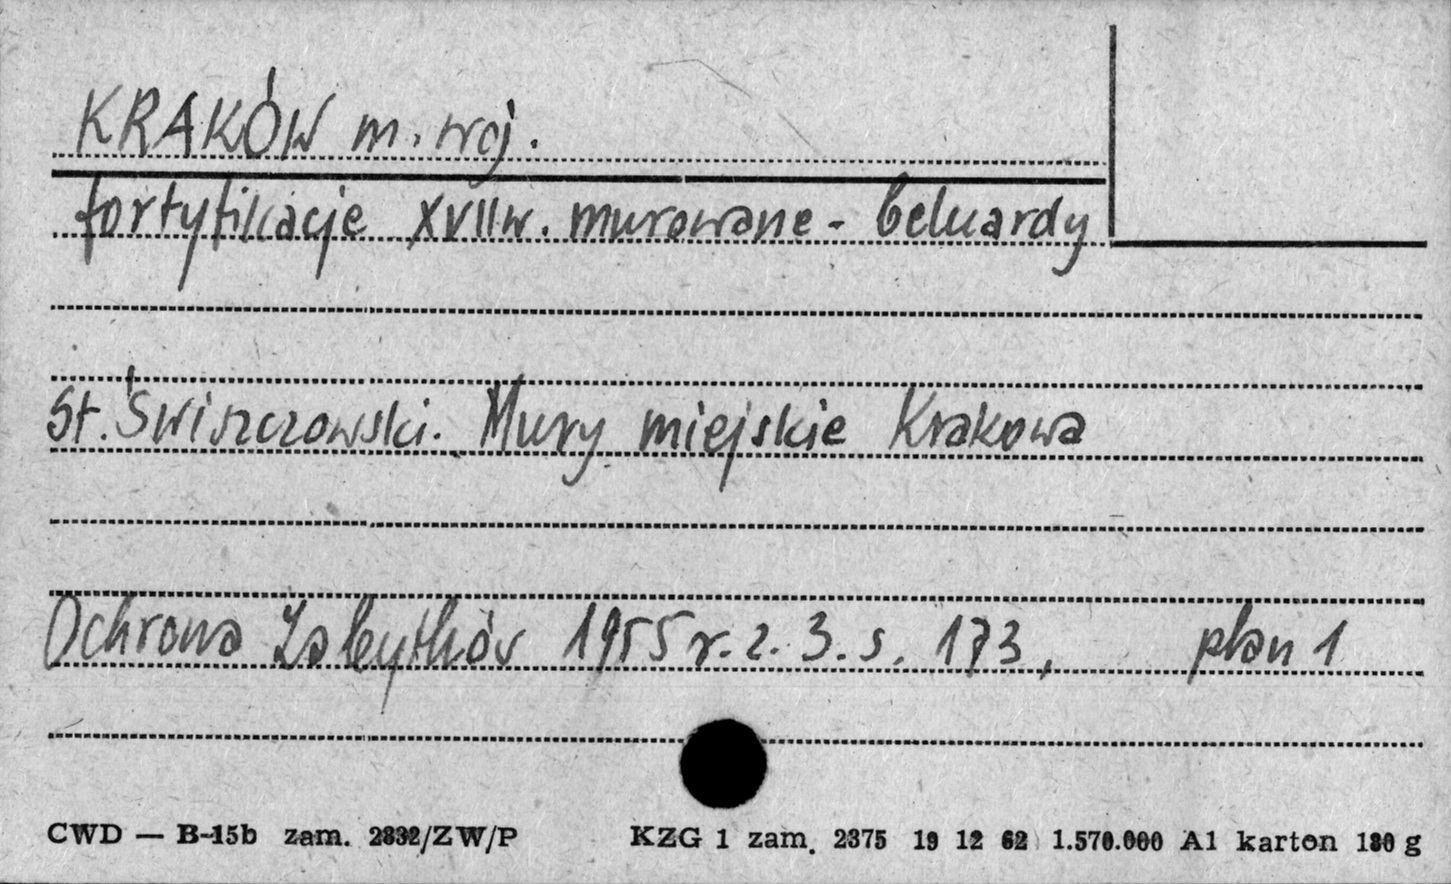 KRAKÓW m. woj.
fortyfikacje XVII w. murowane - beluardy
St. Świszczowski. Mury miejskie Krakowa
Ochrona Zabytków 1955 r. z. 3. s. 173, plan 1
CWD — B-15b zam. 2832/ZW/P KZG 1 zam. 2375 19 12 62 1.570.000 A1 karton 180 g